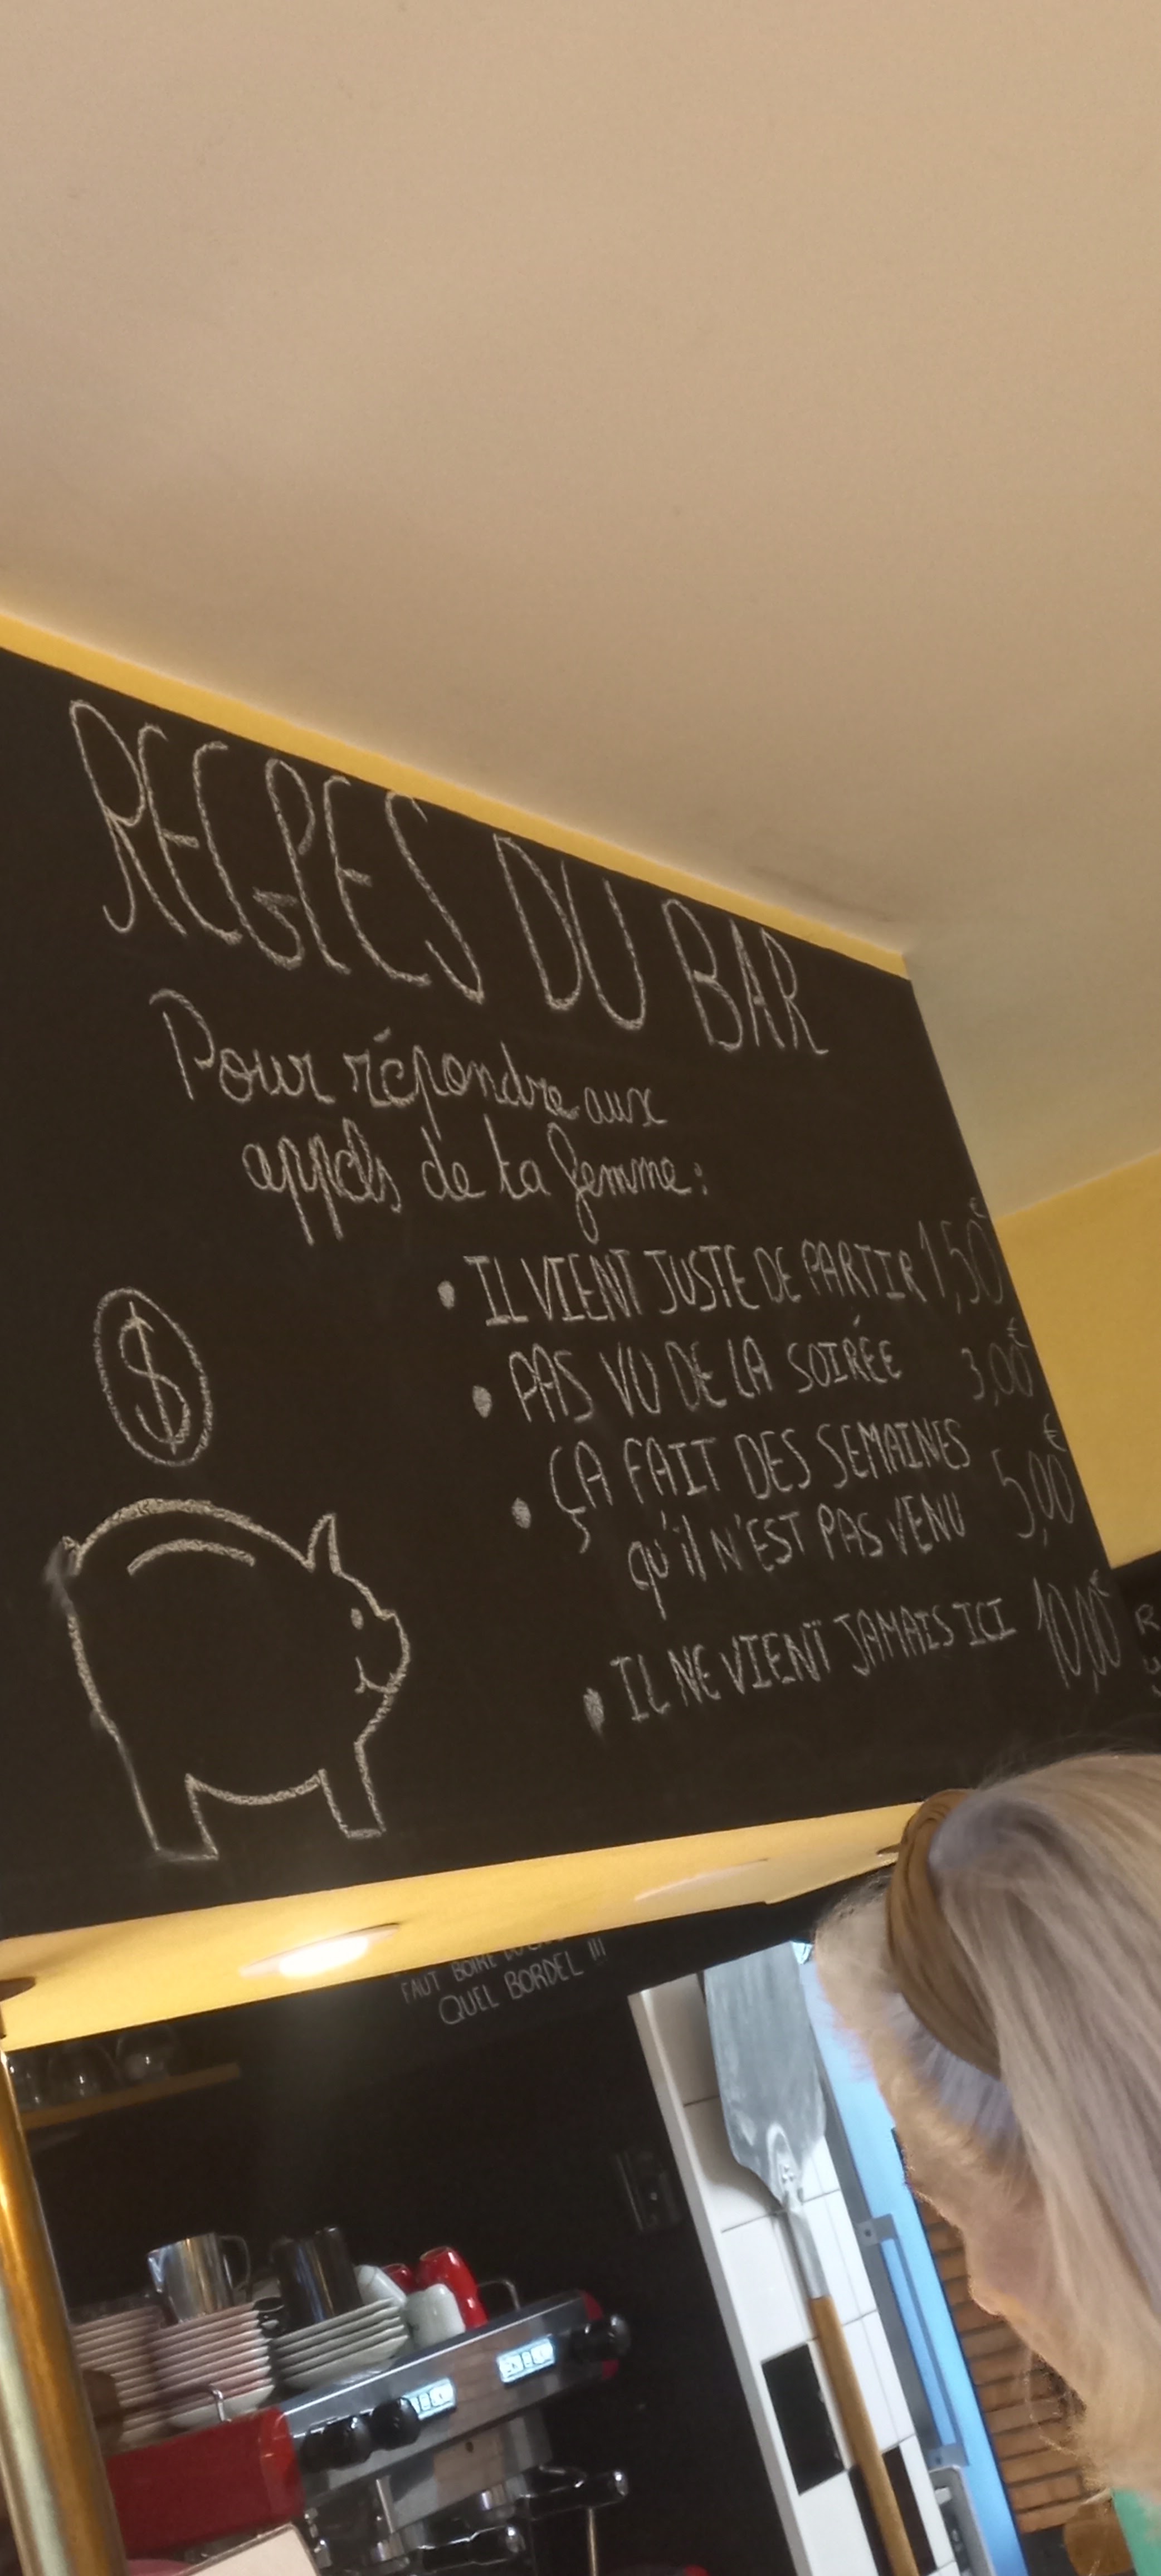 REGRES DU BAR
Pour répondre aux
appels de ta femme :
• IL VIENT JUSTE DE PARTIR 1,50€
• PAS VU DE LA SOIRÉE 3,00€
• ÇA FAIT DES SEMAINES
qu'il N'EST PAS VENU 5,00€
• IL NE VIENT JAMAIS ICI 10,00€
$
FAUT BOIRE
QUEL BORDEL !!!